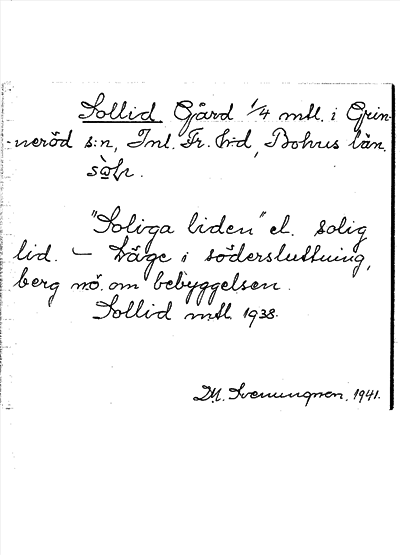 Sollid. Gård 1/4 mtl. i Grin-
-neröd s:n, Inl. Fr. h-d, Bohus län.
"Soliga liden" el. solig
lid. – Läge i södersluttning,
berg nö. om bebyggelsen.
Sollid mtl. 1938.
M. Svenungson. 1941.